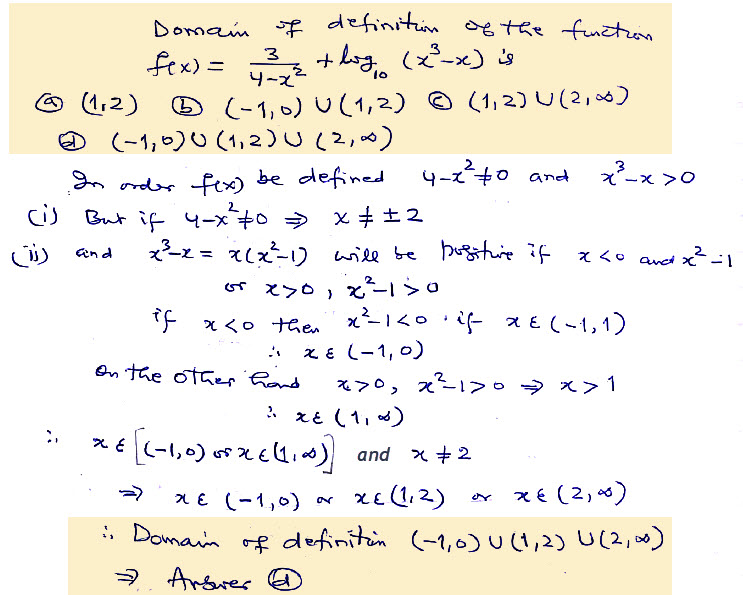 Domain of definition of the function
f(x) = 3/(4-x²) + log₁₀ (x³-x) is
ⓐ (1,2) ⓑ (-1,0) ∪ (1,2) ⓒ (1,2) ∪ (2,∞)
ⓓ (-1,0) ∪ (1,2) ∪ (2,∞)
In order f(x) be defined 4-x²≠0 and x³-x>0
(i) But if 4-x²≠0 ⇒ x ≠ ±2
(ii) and x³-x = x(x²-1) will be positive if x<0 and x²-1
or x>0, x²-1>0
if x<0 then x²-1<0 . if x ε (-1,1)
∴ x ε (-1,0)
On the other hand x>0, x²-1>0 ⇒ x>1
∴ x ε (1,∞)
∴ x ε [(-1,0) or x ε (1,∞)] and x ≠ 2
⇒ x ε (-1,0) or x ε (1,2) or x ε (2,∞)
∴ Domain of definition (-1,0) ∪ (1,2) ∪ (2,∞)
⇒ Answer ⓓ